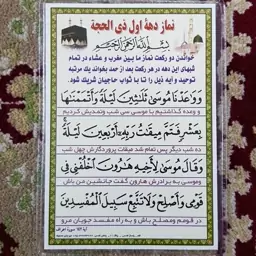 نماز دههٔ اول ذی الحجة
بسم الله الرحمن الرحیم
خواندن دو رکعت نماز ما بین مغرب و عشاء در تمام
شبهای این دهه در هر رکعت بعد از حمد بخواند یک مرتبه
توحید و آیه ذیل را تا با ثواب حاجیان شریک شود.
وَوَاعَدْنَا مُوسَىٰ ثَلَاثِينَ لَيْلَةً وَأَتْمَمْنَاهَا
و وعده گذاشتیم با موسی سی شب و تمدیدش کردیم
بِعَشْرٍ فَتَمَّ مِيقَاتُ رَبِّهِ أَرْبَعِينَ لَيْلَةً
ده شب دیگر پس تمام شد میقات پروردگارش چهل شب
وَقَالَ مُوسَىٰ لِأَخِيهِ هَارُونَ اخْلُفْنِي فِي
وموسی به برادرش هارون گفت جانشین من باش
قَوْمِي وَأَصْلِحْ وَلَا تَتَّبِعْ سَبِيلَ الْمُفْسِدِينَ
در قومم ومصلح باش و به راه مفسد جویان مرو
آیهٔ ۱۴۲ سوره اعراف